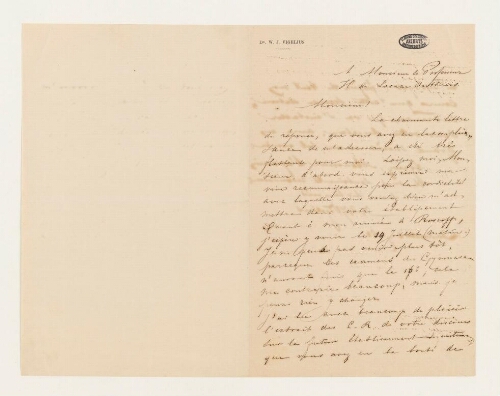 Dr. W. J. VIGELIUS
A Monsieur le Professeur
H. de Lacaze Duthiers
Monsieur!
La charmante lettre
de réponse, que vous avez eu la complai-
sance de m'adresser, a été très
flatteuse pour moi. Laissez moi, Mon-
sieur d'abord vous exprimer ma
vive reconnaissance pour la cordialité
avec laquelle vous voulez bien m'ad-
mettre dans votre établissement
Quant à mon arrivée à Roscoff,
j'espère y venir le 19 Juillet (matin)
Je ne peux pas venir plus tôt,
parceque les examens du Gymnase
n'auront fini que le 16; cela
me contrarie beaucoup, mais je
puis rien y changer
J'ai lu avec beaucoup de plaisir
l'extrait des C. R. de votre discours
sur la future établissement
que vous avez eu la bonté de